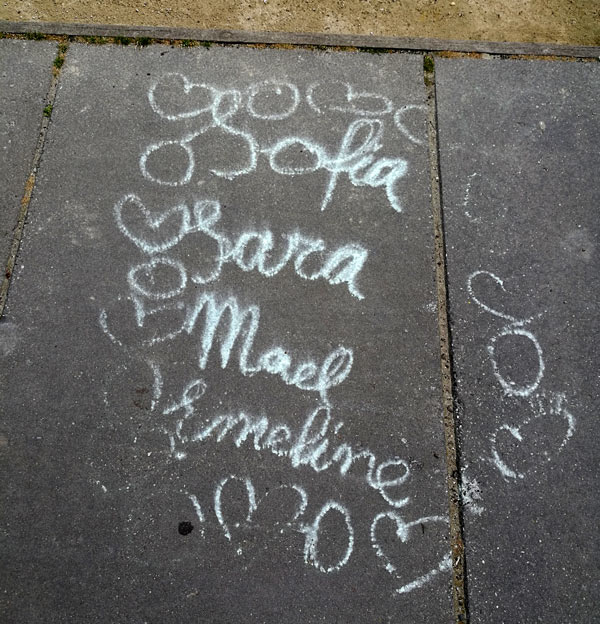 Sofia
Sara
Mael
Emeline